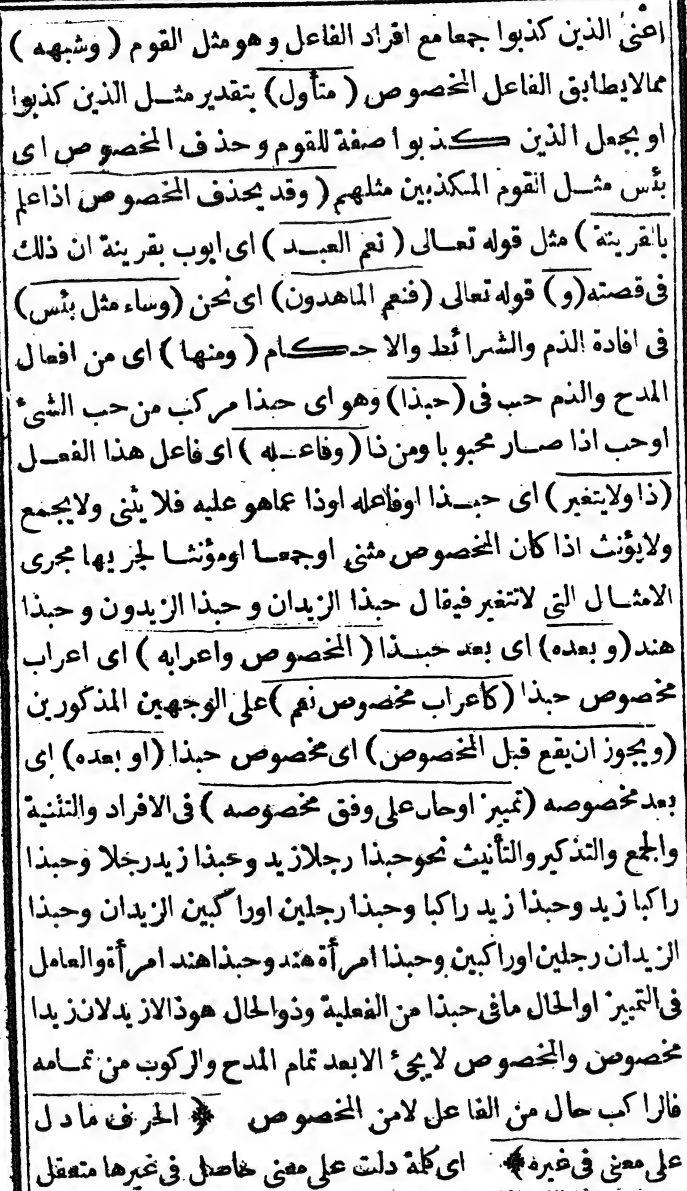 اعنى الذين كذبوا جمعا مع افراد الفاعل وهو مثل القوم (وشبهه)
ممالايطابق الفاعل المخصوص (متأول) بتقدير مثل الذين كذبوا
او بجعل الذين كذبوا صفة للقوم وحذف المخصوص اى
بئس مثل القوم المكذبين مثلهم (وقد يحذف المخصوص اذاعلم
بالقرينة) مثل قوله تعالى (نعم العبد) اى ايوب بقرينة ان ذلك
فى قصته (و) قوله تعالى (فنعم الماهدون) اى نحن (وساء مثل بئس)
فى افادة الذم والشرائط والاحكام (ومنها) اى من افعال
المدح والذم حب فى (حبذا) وهو اى حبذا مركب من حب الشئ
اوحب اذا صار محبوبا ومن ذا (وفاعله) اى فاعل هذا الفعل
(ذا ولايتغير) اى حبذا اوفاعله اوذا عماهو عليه فلا يثنى ولايجمع
ولايؤنث اذا كان المخصوص مثنى اوجمعا اومؤنثا لجريها مجرى
الامثال التى لاتتغير فيقال حبذا الزيدان وحبذا الزيدون وحبذا
هند (و بعده) اى بعد حبذا (المخصوص واعرابه) اى اعراب
مخصوص حبذا (كاعراب مخصوص نعم) على الوجهين المذكورين
(ويجوز ان يقع قبل المخصوص) اى مخصوص حبذا (او بعده) اى
بعد مخصوصه (تمييز اوحال على وفق مخصوصه) فى الافراد والتثنية
والجمع والتذكير والتأنيث نحو حبذا رجلا زيد وحبذا زيد رجلا وحبذا
راكبا زيد وحبذا زيد راكبا وحبذا رجلين اوراكبين الزيدان وحبذا
الزيدان رجلين اوراكبين وحبذا امرأة هند وحبذا هند امرأة والعامل
فى التمييز اوالحال مافى حبذا من الفعلية وذوالحال هوذا لازيد لان زيدا
مخصوص والمخصوص لايجئ الابعد تمام المدح والركوب من تمامه
فالراكب حال من الفاعل لامن المخصوص ﴿ الحرف مادل
على معنى فى غيره ﴾ اى كلمة دلت على معنى حاصل فى غيرها متعقل